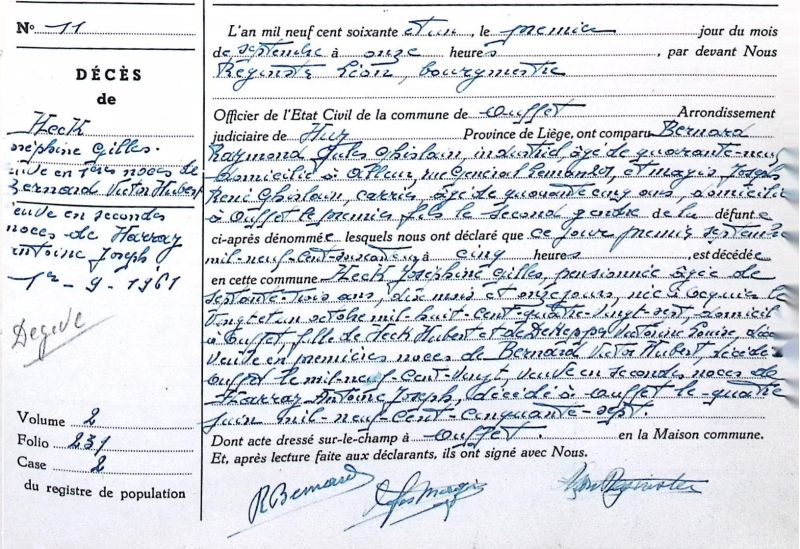 N° 11
DÉCÈS
de
Heck
Joséphine Gilles.
veuve en 1ères noces de
Bernard Victor Hubert
veuve en secondes
noces de Harray
Antoine Joseph
1er - 9 - 1961
Volume 2
Folio 231
Case 2
du registre de population
L'an mil neuf cent soixante et un, le premier jour du mois
de septembre à onze heures, par devant Nous
Réginster Léon, bourgmestre
Officier de l'Etat Civil de la commune de Ouffet Arrondissement
judiciaire de Huy Province de Liège, ont comparu Bernard
Raymond Jules Ghislain, industriel, âgé de quarante-neuf
domicilié à Alleur, rue Général Lemanst, et Magis Joseph
René Ghislain, carrier, âgé de quarante cinq ans, domicilié
à Ouffet le premier fils le second gendre de la défunte
ci-après dénommée lesquels nous ont déclaré que ce jour premier septembre
mil-neuf-cent-soixante à cinq heures, est décédée
en cette commune Heck Joséphine Gilles, pensionnée âgée de
septante-trois ans, dix mois et onze jours, née à Ocquier le
vingt et un octobre mil huit-cent-quatre-vingt-sept, domicil
à Ouffet, fille de Heck Hubert et de Victorine Louise, décé
veuve en premières noces de Bernard Victor Hubert, décédé à
Ouffet le mil-neuf cent-vingt, veuve en secondes noces de
Harray Antoine Joseph, décédé à Ouffet le quatre
juin mil-neuf-cent-cinquante-sept.
Dont acte dressé sur-le-champ à Ouffet. en la Maison commune.
Et, après lecture faite aux déclarants, ils ont signé avec Nous.
R Bernard